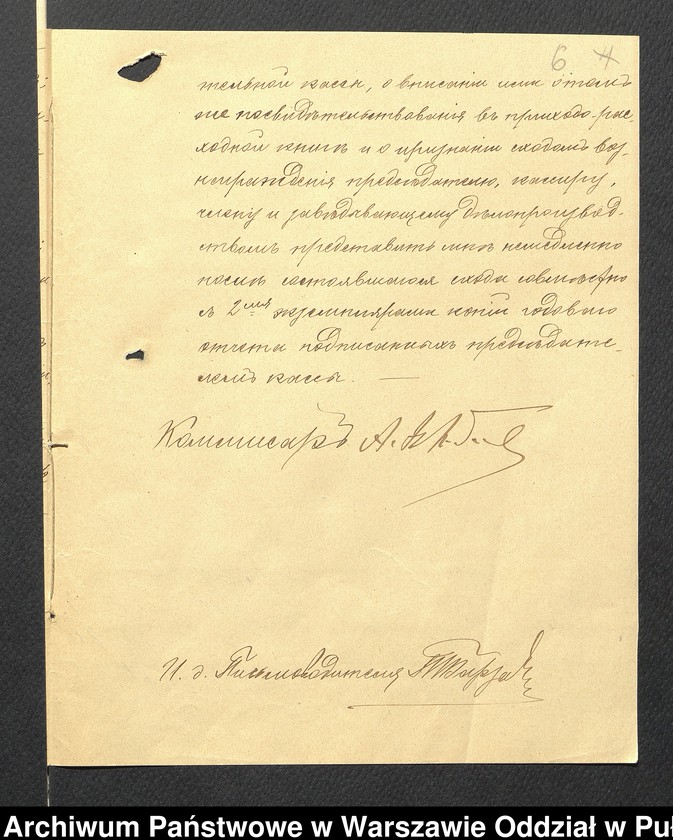 6 4
тельной кассы, о вписаніи ими о томъ
же посвидѣтельствованія въ приходо-рас-
ходной книгѣ и о признаніи сходомъ воз-
награжденія предсѣдателю, кассиру,
члену и завѣдывающему дѣлопроизвод-
ствомъ представить мнѣ немедленно
послѣ состоявшагося схода совмѣстно
съ 2мя экземплярами копіи годоваго
отчета подписанныхъ предсѣдате-
лемъ кассы. —
Коммисаръ А.
И. д. Письмоводителя
Archiwum Państwowe w Warszawie Oddział w Puł